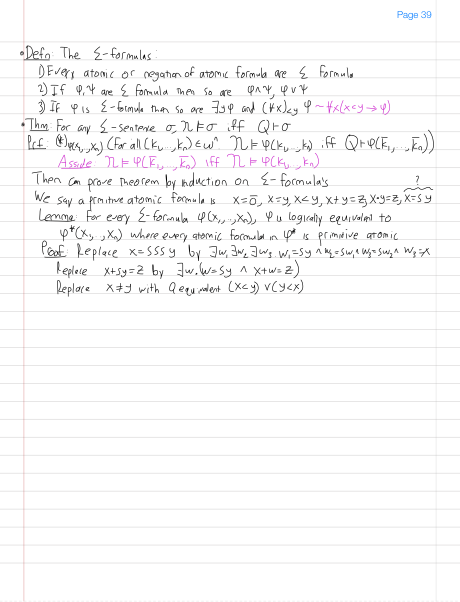 Page 39
• Defn: The Σ-formulas:
1) Every atomic or negation of atomic formula are Σ formula
2) If φ, ψ are Σ formula then so are φ∧ψ, φ∨ψ
3) If φ is Σ-formula then so are ∃yφ and (∀x)<y φ ~ ∀x(x<y → φ)
• Thm: For any Σ-sentence σ, 𝒩 ⊨ σ iff Q ⊢ σ
Prf: (*)φ(x₁,…,xₙ) (For all (k₁,…,kₙ) ∈ ωⁿ 𝒩 ⊨ φ(k₁,…,kₙ) iff Q ⊢ φ(k̄₁,…,k̄ₙ))
Asside: 𝒩 ⊨ φ(k̄₁,…,k̄ₙ) iff 𝒩 ⊨ φ(k₁,…,kₙ)
Then can prove theorem by induction on Σ-formula's
?
We say a primitive atomic formula is x=o, x=y, x<y, x+y=z, x·y=z, x=sy
Lemma: For every Σ-formula φ(x₁,…,xₙ), φ is logically equivalent to
φ*(x₁,…,xₙ) where every atomic formula in φ* is primitive atomic
Proof: Replace x=sssy by ∃w₁∃w₂∃w₃. w₁=sy ∧ w₂=sw₁ ∧ w₃=sw₂ ∧ w₃=x
Replace x+sy=z by ∃w.(w=sy ∧ x+w=z)
Replace x≠y with Q equivalent (x<y) ∨ (y<x)